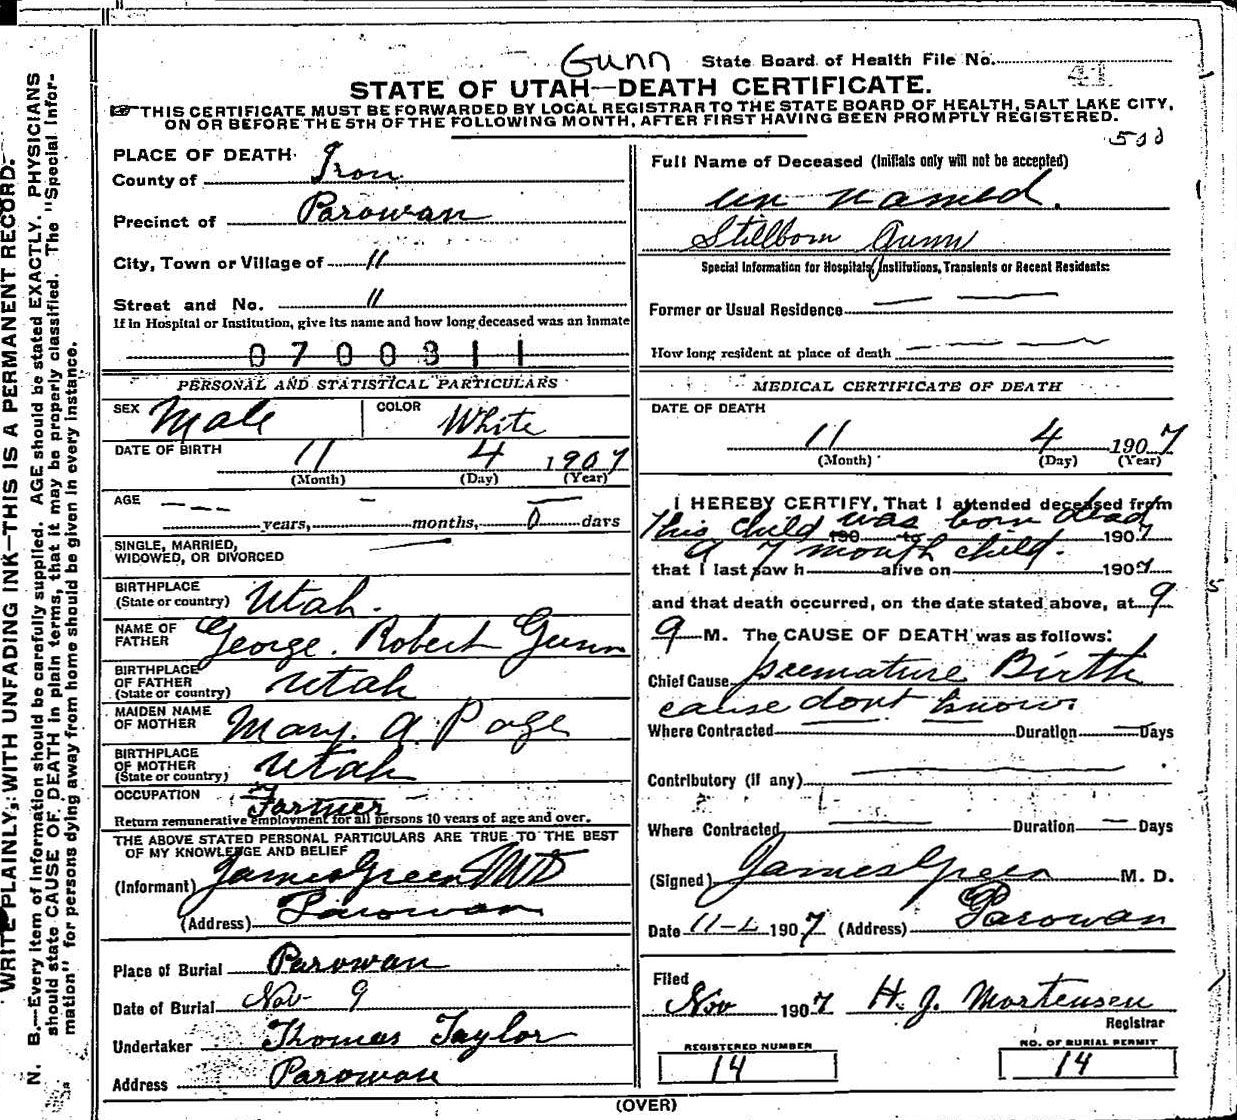 Gunn State Board of Health File No.
41
STATE OF UTAH—DEATH CERTIFICATE.
THIS CERTIFICATE MUST BE FORWARDED BY LOCAL REGISTRAR TO THE STATE BOARD OF HEALTH, SALT LAKE CITY,
ON OR BEFORE THE 5TH OF THE FOLLOWING MONTH, AFTER FIRST HAVING BEEN PROMPTLY REGISTERED.
WRITE PLAINLY, WITH UNFADING INK—THIS IS A PERMANENT RECORD.
N. B.—Every item of information should be carefully supplied. AGE should be stated EXACTLY. PHYSICIANS
should state CAUSE OF DEATH in plain terms, that it may be properly classified. The "Special Infor-
mation" for persons dying away from home should be given in every instance.
PLACE OF DEATH
County of Iron
Precinct of Parowan
City, Town or Village of "
Street and No. "
If in Hospital or Institution, give its name and how long deceased was an inmate
0700311
PERSONAL AND STATISTICAL PARTICULARS
SEX Male COLOR White
DATE OF BIRTH 11 4 1907
(Month) (Day) (Year)
AGE
years, months, 0 days
SINGLE, MARRIED,
WIDOWED, OR DIVORCED
BIRTHPLACE
(State or country) Utah.
NAME OF
FATHER George. Robert Gunn
BIRTHPLACE
OF FATHER
(State or country) Utah
MAIDEN NAME
OF MOTHER Mary. A. Page
BIRTHPLACE
OF MOTHER
(State or country) Utah
OCCUPATION Farmer
Return remunerative employment for all persons 10 years of age and over.
THE ABOVE STATED PERSONAL PARTICULARS ARE TRUE TO THE BEST
OF MY KNOWLEDGE AND BELIEF
(Informant) James Green MD
(Address) Parowan
Place of Burial Parowan
Date of Burial Nov- 9
Undertaker Thomas Taylor
Address Parowan
Full Name of Deceased (Initials only will not be accepted)
un named.
Stillborn Gunn
Special Information for Hospitals, Institutions, Transients or Recent Residents:
Former or Usual Residence
How long resident at place of death
MEDICAL CERTIFICATE OF DEATH
DATE OF DEATH
11 4 1907
(Month) (Day) (Year)
I HEREBY CERTIFY, That I attended deceased from
This child was born dead
190 to 1907
a 7 month child.
that I last saw h alive on 1907
and that death occurred, on the date stated above, at 9
9 M. The CAUSE OF DEATH was as follows:
Chief Cause premature Birth
cause dont know
Where Contracted Duration Days
Contributory (if any)
Where Contracted Duration Days
(Signed) James Green M. D.
Date 11- 1907 (Address) Parowan
Filed
Nov 1907 H. J. Mortensen
Registrar
REGISTERED NUMBER
14
NO. OF BURIAL PERMIT
14
(OVER)